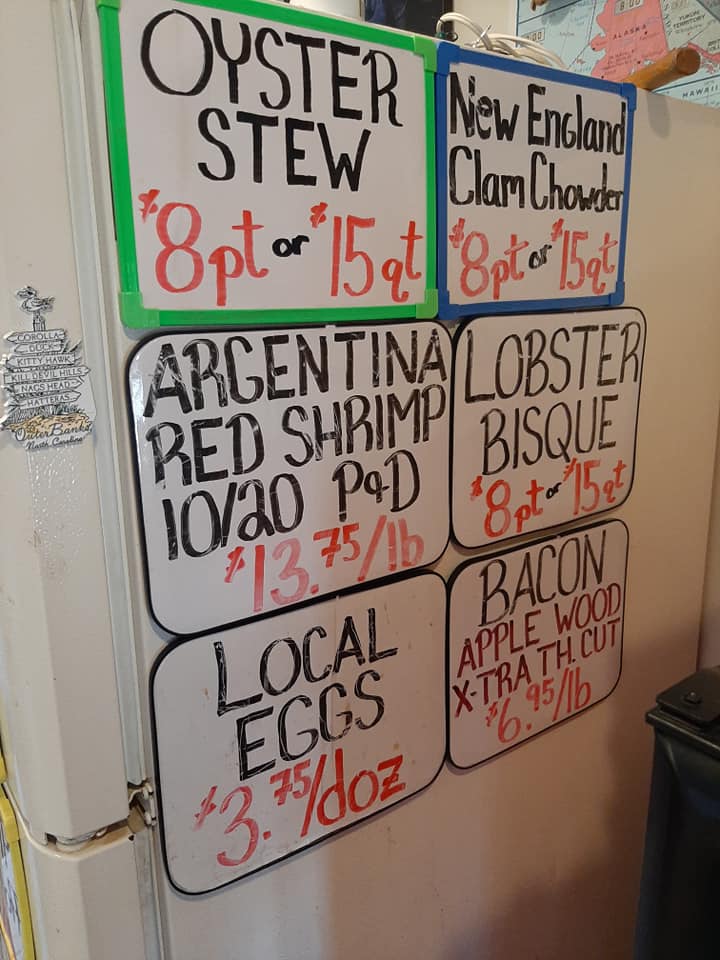 OYSTER
STEW
$8pt or $15qt
New England
Clam Chowder
$8pt or $15qt
ARGENTINA
RED SHRIMP
10/20 P&D
$13.75/lb
LOBSTER
BISQUE
$8pt or $15qt
LOCAL
EGGS
$3.75/doz
BACON
APPLE WOOD
X-TRA TH. CUT
$6.95/lb
COROLLA
DUCK
KITTY HAWK
KILL DEVIL HILLS
NAGS HEAD
HATTERAS
Outer Banks
North Carolina
8:00
ALASKA
YUKON
TERRITORY
HAWAII